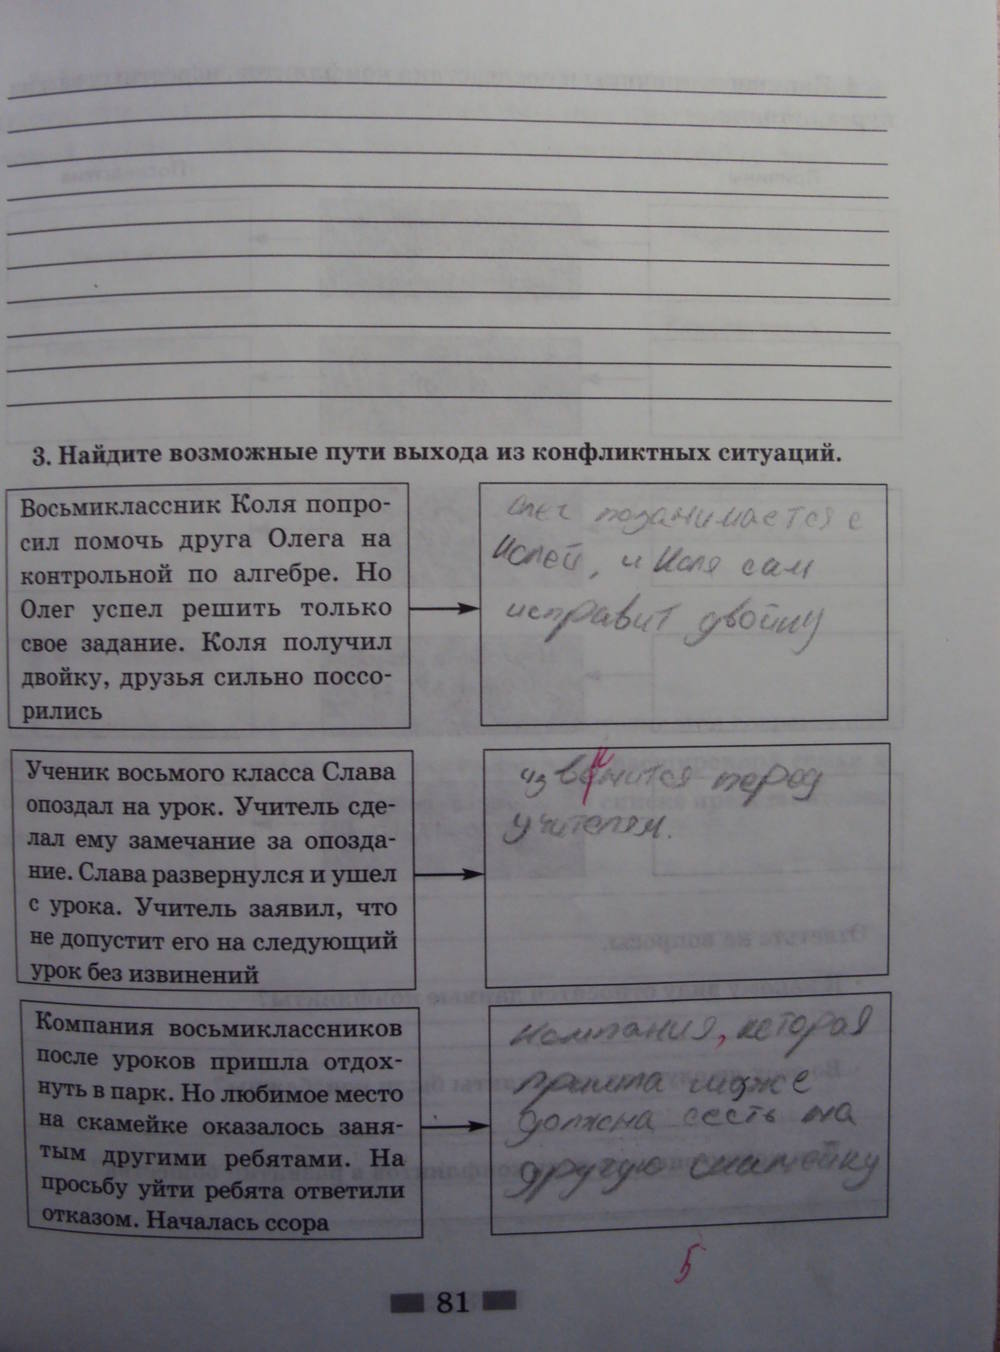 3. Найдите возможные пути выхода из конфликтных ситуаций.
Восьмиклассник Коля попро-
сил помочь друга Олега на
контрольной по алгебре. Но
Олег успел решить только
свое задание. Коля получил
двойку, друзья сильно поссо-
рились
Олег позанимается с
Колей, и Коля сам
исправит двойку
Ученик восьмого класса Слава
опоздал на урок. Учитель сде-
лал ему замечание за опозда-
ние. Слава развернулся и ушел
с урока. Учитель заявил, что
не допустит его на следующий
урок без извинений
извинится перед
учителем.
Компания восьмиклассников
после уроков пришла отдох-
нуть в парк. Но любимое место
на скамейке оказалось заня-
тым другими ребятами. На
просьбу уйти ребята ответили
отказом. Началась ссора
Компания, которая
пришла позже
должна сесть на
другую скамейку
5
81